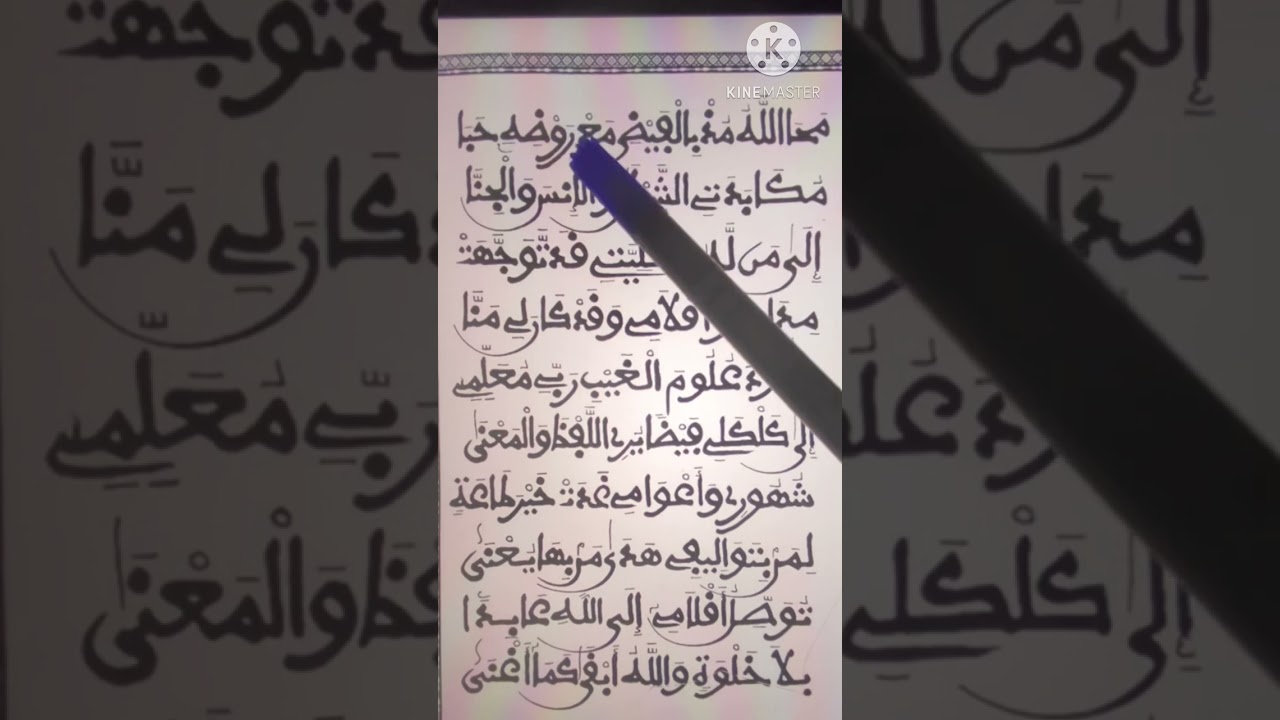 KINEMASTER
مَحَا اللَّهُ مُذْ بِالْفَيْضِ مَعْرُوضِهِ حَبَا
مُكَابَدَتِي وَالْإِنسَ وَالْجِنَّا
إِلَى مَن قَد تَّوَجَّهَتْ
أَقْلَامِي وَقَدْ كَانَ لِي مَنَّا
عُلُومَ الْغَيْبِ رَبِّي مُعَلِّمِي
إِلَى كَلْكَلِي فَيْضًا اللَّفْظَ وَالْمَعْنَى
شُهُورِي وَأَعْوَامِي غَدَتْ خَيْرَ طَاعَةِ
لِمَن بِتَوَالِيفِي هَدَى مَن بِهَا يُعْنَى
تُوَصِّلُ أَقْلَامِي إِلَى اللَّهِ عَابِدًا
بِلَا خَلْوَةٍ وَاللَّهُ أَبْقَى كَمَا أَغْنَى